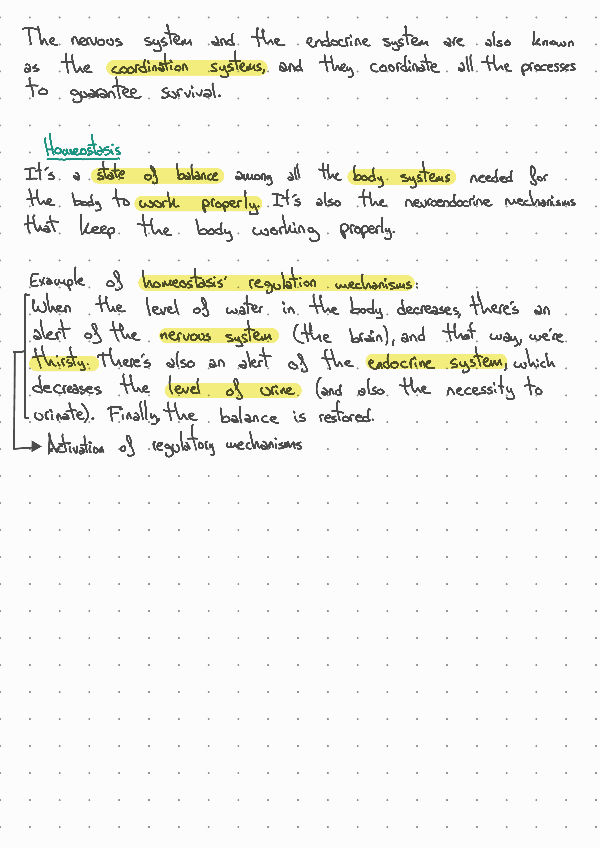 The nervous system and the endocrine system are also known
as the coordination systems, and they coordinate all the processes
to guarantee survival.
Homeostasis
It's a state of balance among all the body systems needed for
the body to work properly. It's also the neuroendocrine mechanisms
that keep the body working properly.
Example of homeostasis' regulation mechanisms:
When the level of water in the body decreases, there's an
alert of the nervous system (the brain), and that way, we're
thirsty. There's also an alert of the endocrine system, which
decreases the level of urine (and also the necessity to
urinate). Finally, the balance is restored.
Activation of regulatory mechanisms